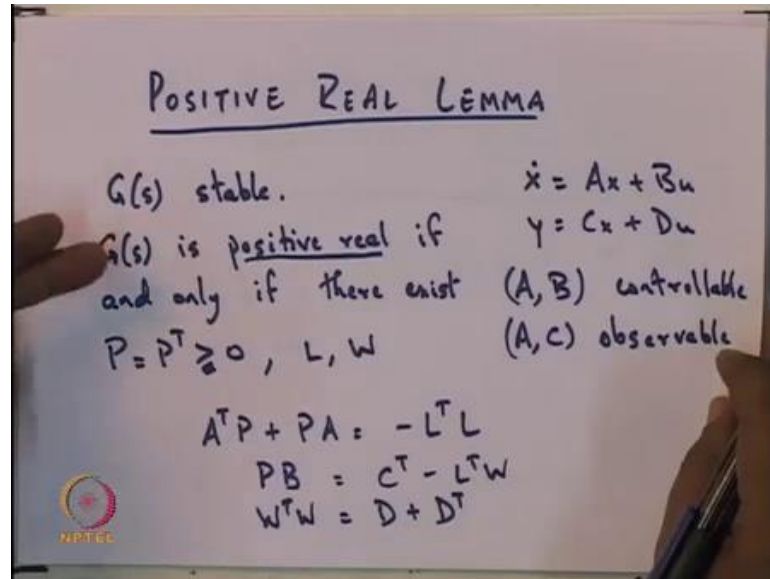 POSITIVE REAL LEMMA
G(s) stable.
G(s) is positive real if
and only if there exist
P = Pᵀ ≥ 0 , L, W
ẋ = Ax + Bu
y = Cx + Du
(A, B) controllable
(A, C) observable
AᵀP + PA = -LᵀL
PB = Cᵀ - LᵀW
WᵀW = D + Dᵀ
NPTEL